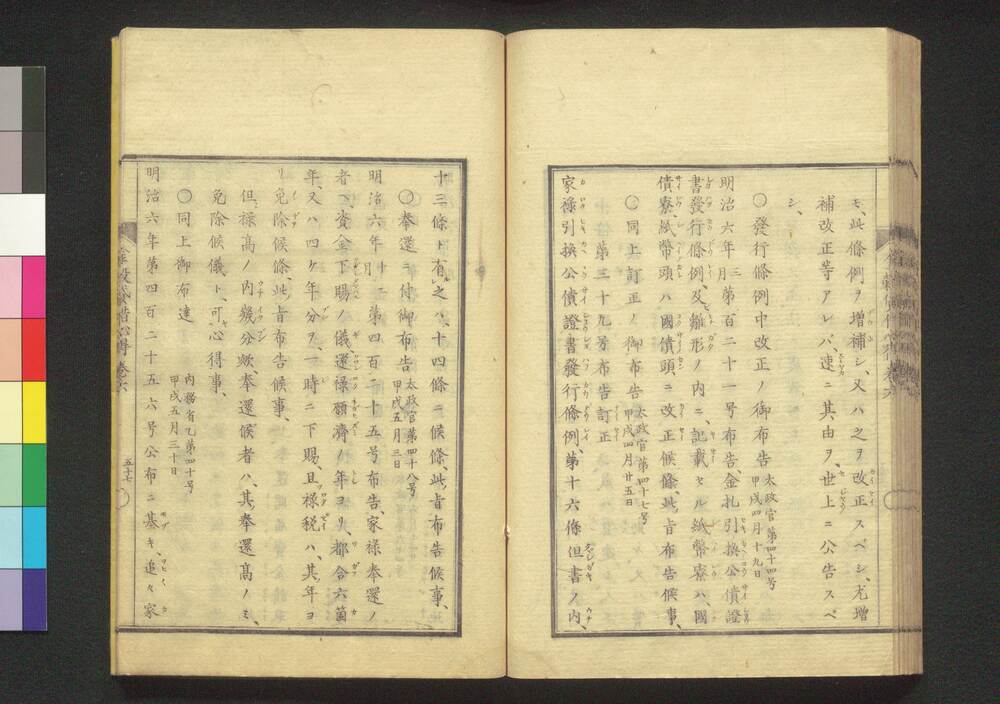 モ、此條例ヲ增補シ、又ハ之ヲ改正スベシ、尤增
補改正等アレバ、速ニ其由ヲ、世上ニ公告スベ
シ、
〇發行條例中改正ノ御布告 太政官第四十四号 甲戌四月十九日
明治六年三月第百二十一号布告、金札引換公債證
書發行條例、及ヒ雛形ノ内ニ、記載セル紙幣寮ハ、國
債寮、紙幣頭ハ國債頭、ニ改正候條、此旨布告候事、
〇同上訂正ノ御布告 太政官第四十七号 甲戌四月廿五日
第三十九号布告訂正
家祿引換公債證書發行條例、第十六條但書ノ内、
十三條ト有之ハ、十四條ニ候條、此旨布告候事、
〇奉還ニ付御布告 太政官第四十八号 甲戌五月三日
明治六年十二月第四百二十五号布告、家祿奉還ノ
者ヘ資金下賜ノ儀、還祿願濟ノ年ヨリ、都合六箇
年、又ハ四ケ年分ヲ、一時ニ下賜、且祿税ハ、其年ヨ
リ免除候條、此旨布告候事、
但、祿高ノ内幾分歟、奉還候者ハ、其奉還高ノミ、
免除候儀ト、可心得事、
〇同上御布達 内務省乙第四十号 甲戌五月三十日
明治六年第四百二十五六号公布ニ基キ、追々家
五十七